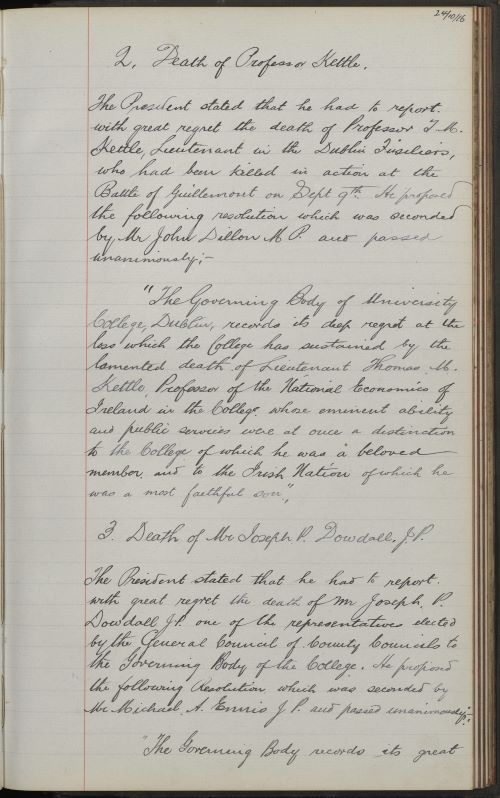 24/10/16
2. Death of Professor Kettle.
The President stated that he had to report.
with great regret the death of Professor T. M.
Kettle, Lieutenant in the Dublin Fusiliers,
who had been killed in action at the
Battle of Guillemont on Sept 9th. He proposed
the following resolution which was seconded
by Mr John Dillon M.P. and passed
unanimously;-
"The Governing Body of University
College, Dublin, records its deep regret at the
loss which the College has sustained by the
lamented death of Lieutenant Thomas M.
Kettle, Professor of the National Economics of
Ireland in the College, whose eminent ability
and public services were at once a distinction
to the College of which he was a beloved
member, and to the Irish Nation of which he
was a most faithful son".
3. Death of Mr Joseph P. Dowdall, J.P.
The President stated that he had to report.
with great regret the death of Mr Joseph P.
Dowdall J.P. one of the representatives elected
by the General Council of County Councils to
the Governing Body of the College. He proposed
the following Resolution which was seconded by
Mr Michael A. Ennis J.P. and passed unanimously:-
"The Governing Body records its great